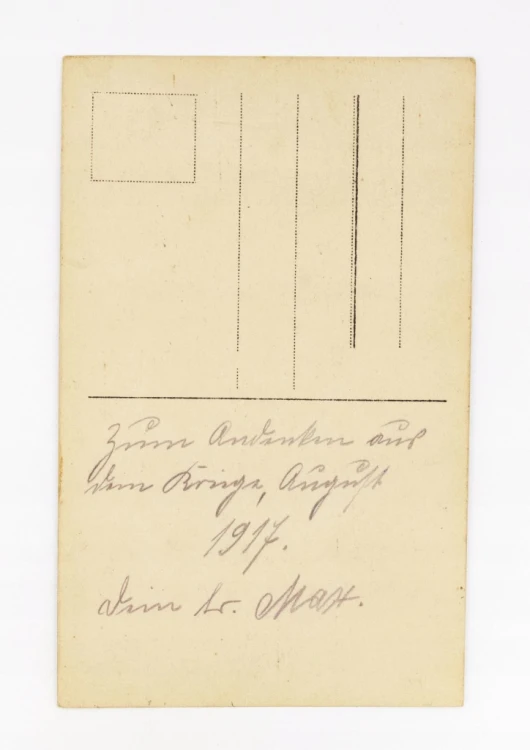 Zum Andenken aus
dem Kriege, August
1917.
Dein tr. Max.